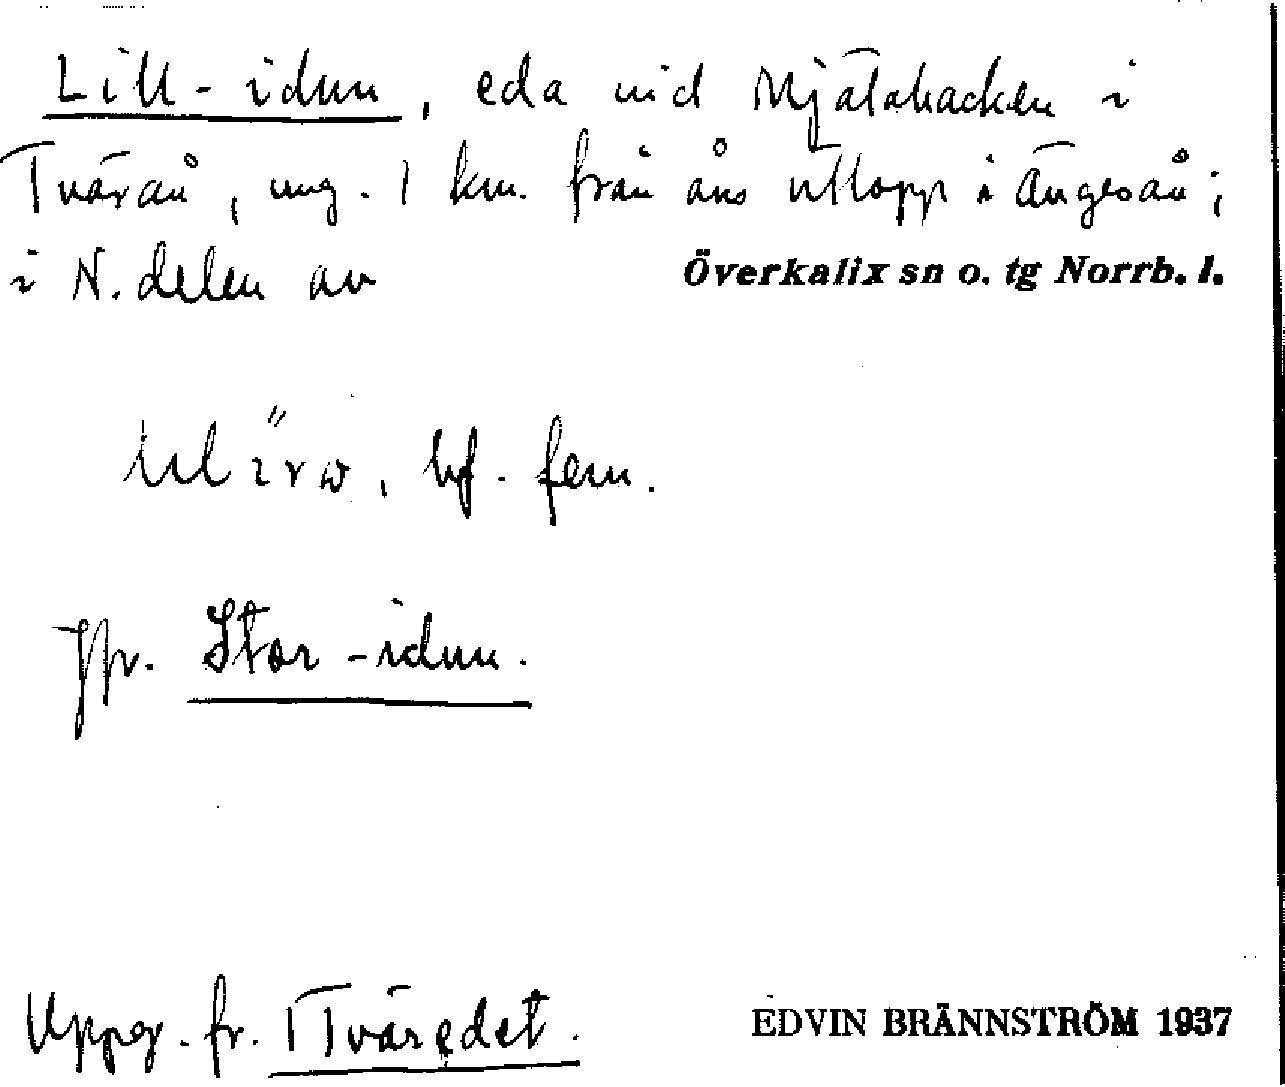 Lill-idun, eda vid Mjätabacken i
Tväraå, ung. 1 km. från åns utlopp i Ängesån;
i N. delen av Överkalix sn o. tg Norrb. l.
bf. fem.
Jfr. Stor-idun.
Uppg. fr. Tväredet.
EDVIN BRÄNNSTRÖM 1937